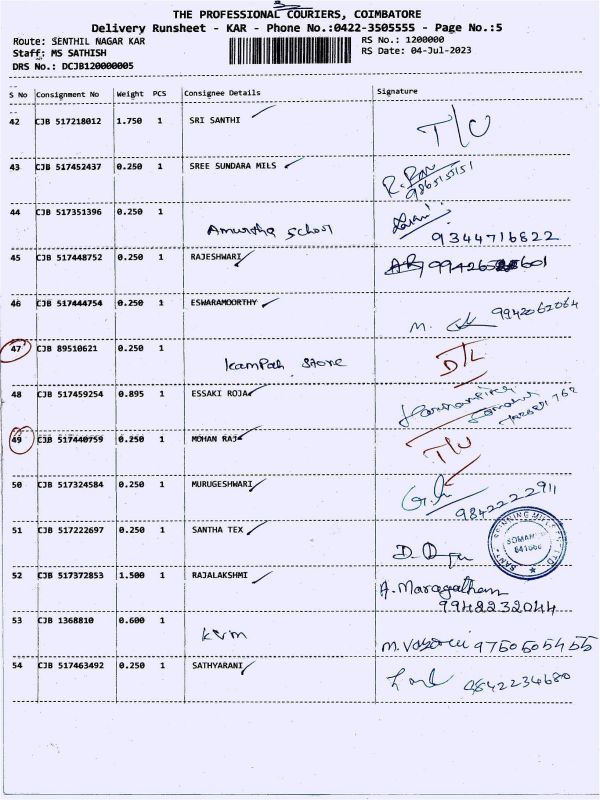 THE PROFESSIONAL COURIERS, COIMBATORE
Delivery Runsheet - KAR - Phone No.:0422-3505555 - Page No.:5
Route: SENTHIL NAGAR KAR
RS No.: 1200000
Staff: MS SATHISH
RS Date: 04-Jul-2023
DRS No.: DCJB120000005
S No Consignment No Weight PCS Consignee Details Signature
42 CJB 517218012 1.750 1 SRI SANTHI T/U
43 CJB 517452437 0.250 1 SREE SUNDARA MILS
9865155151
44 CJB 517351396 0.250 1
Amurtha School 9344716822
45 CJB 517448752 0.250 1 RAJESHWARI
46 CJB 517444754 0.250 1 ESWARAMOORTHY
M. 9942062064
47 CJB 89510621 0.250 1
Kampah Store D/L
48 CJB 517459254 0.895 1 ESSAKI ROJA
49 CJB 517440759 0.250 1 MOHAN RAJ T/U
50 CJB 517324584 0.250 1 MURUGESHWARI
9842222911
51 CJB 517222697 0.250 1 SANTHA TEX
SPINNING MILLS
SOMANUR
641668
52 CJB 517372853 1.500 1 RAJALAKSHMI
A. Maragatham
9948232044
53 CJB 1368810 0.600 1
KVM 9750505455
54 CJB 517463492 0.250 1 SATHYARANI
9842234680